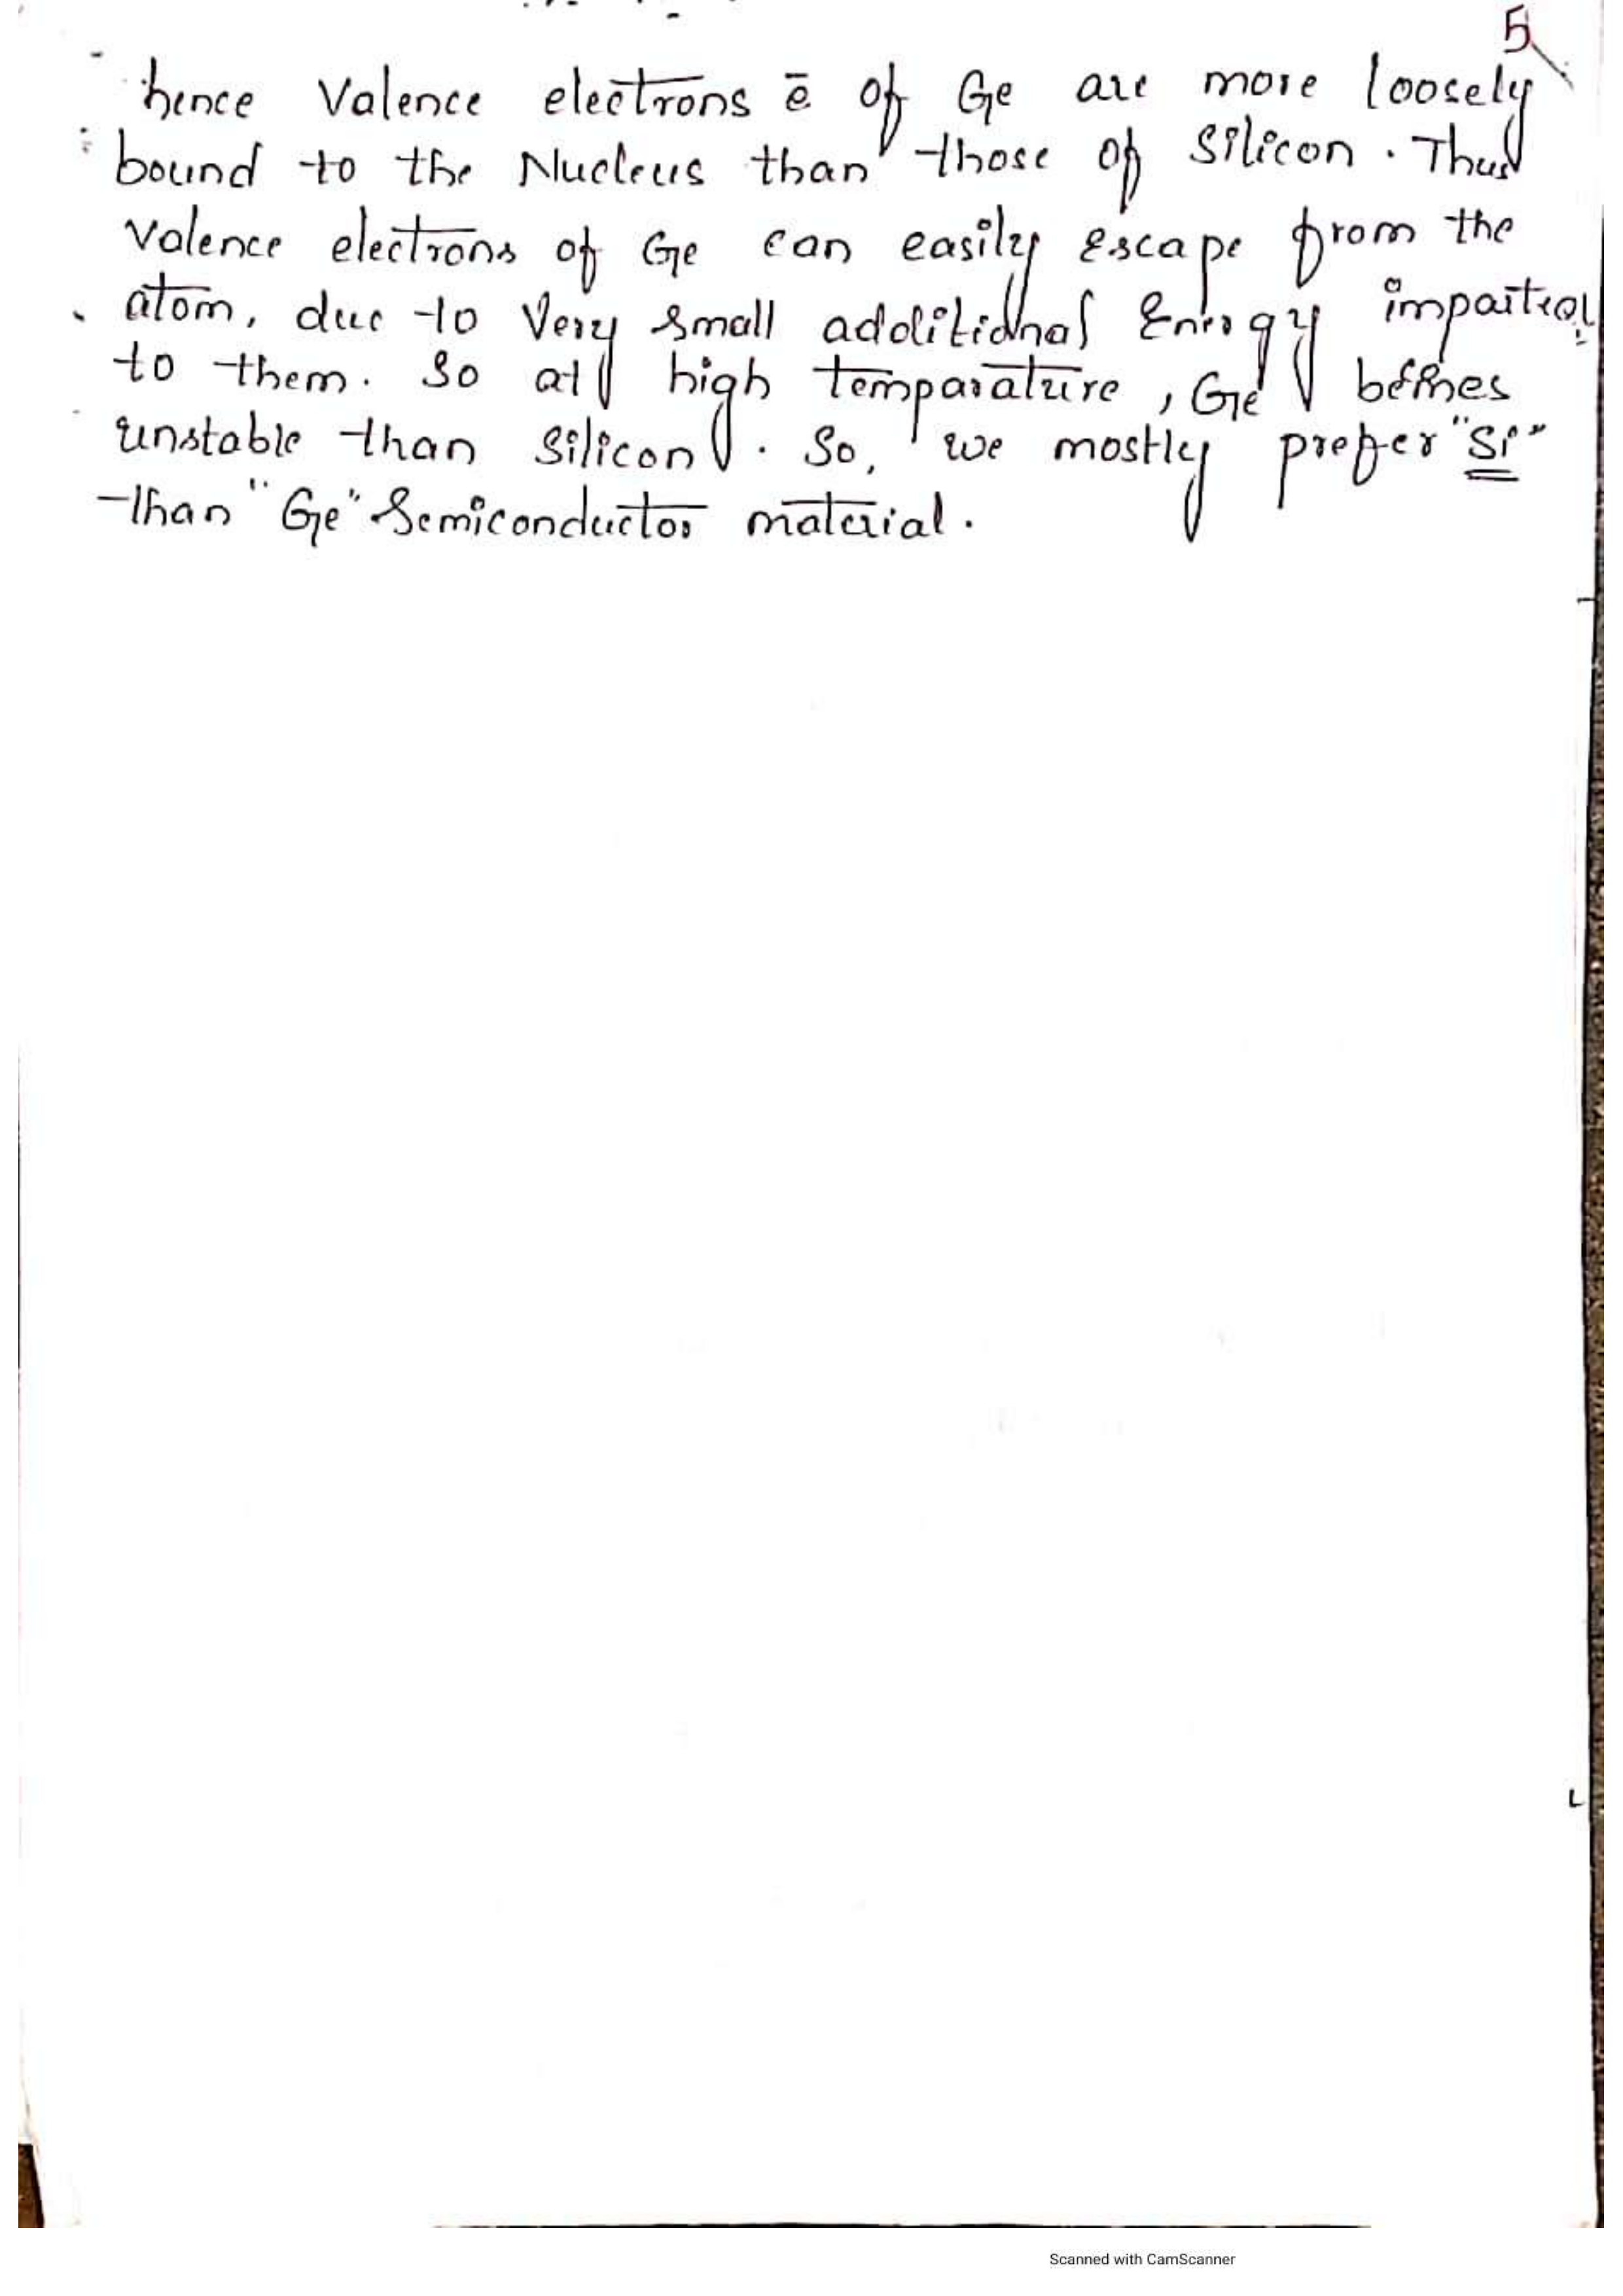 5
hence Valence electrons ē of Ge are more loosely
bound to the Nucleus than those of Silicon. Thus
Valence electrons of Ge can easily escape from the
atom, due to Very small additional Energy imparted
to them. So at high temparature, Ge
unstable than silicon. So, we mostly prefer "Si"
than "Ge" Semiconductor material.
Scanned with CamScanner